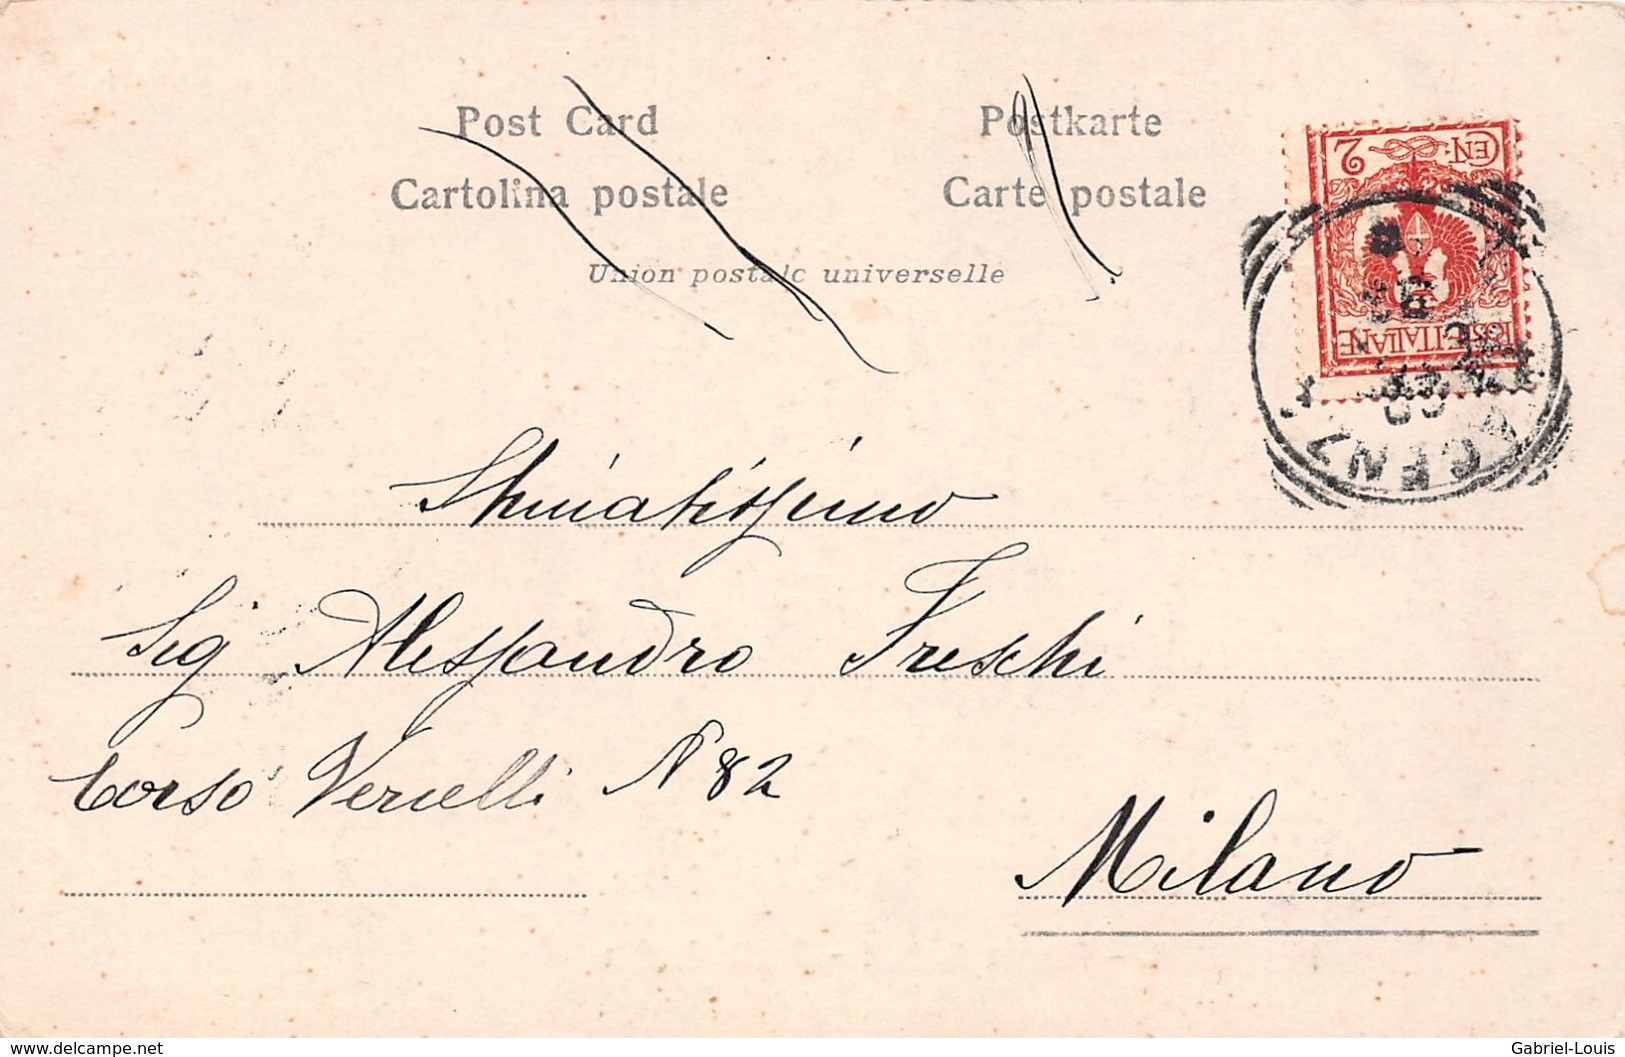 Post Card
Postkarte
Cartolina postale
Carte postale
Union postale universelle
CEN. 2
POSTE ITALIANE
Stimatissimo
Sig Alessandro Freschi
Corso Vercelli N 82
Milano
delcampe.net
Gabriel-Louis